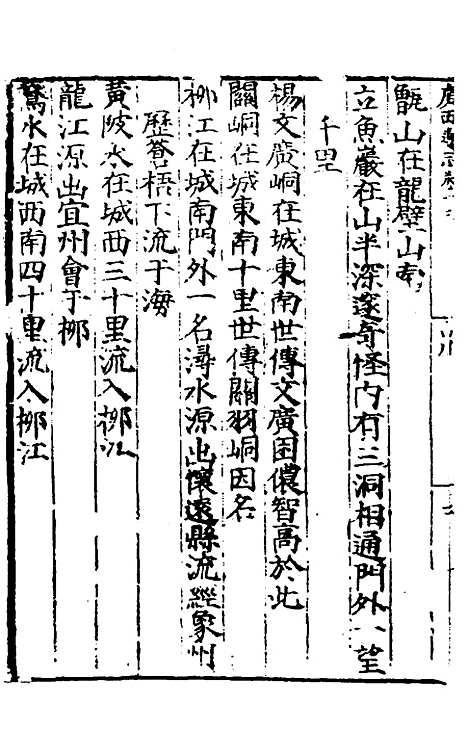 甑山在龍壁山東
立魚巖在山半深邃奇怪内有三洞相通門外一望
千里
楊文廣峒在城東南世傳文廣困儂智高於此
關峒在城東南十里世傳關羽峒因名
柳江在城南門外一名潯水源出懷遠縣流經象州
歷蒼梧下流于海
黃陂水在城西三十里流入柳江
龍江源出宜州會于柳
鵞水在城西南四十里流入柳江